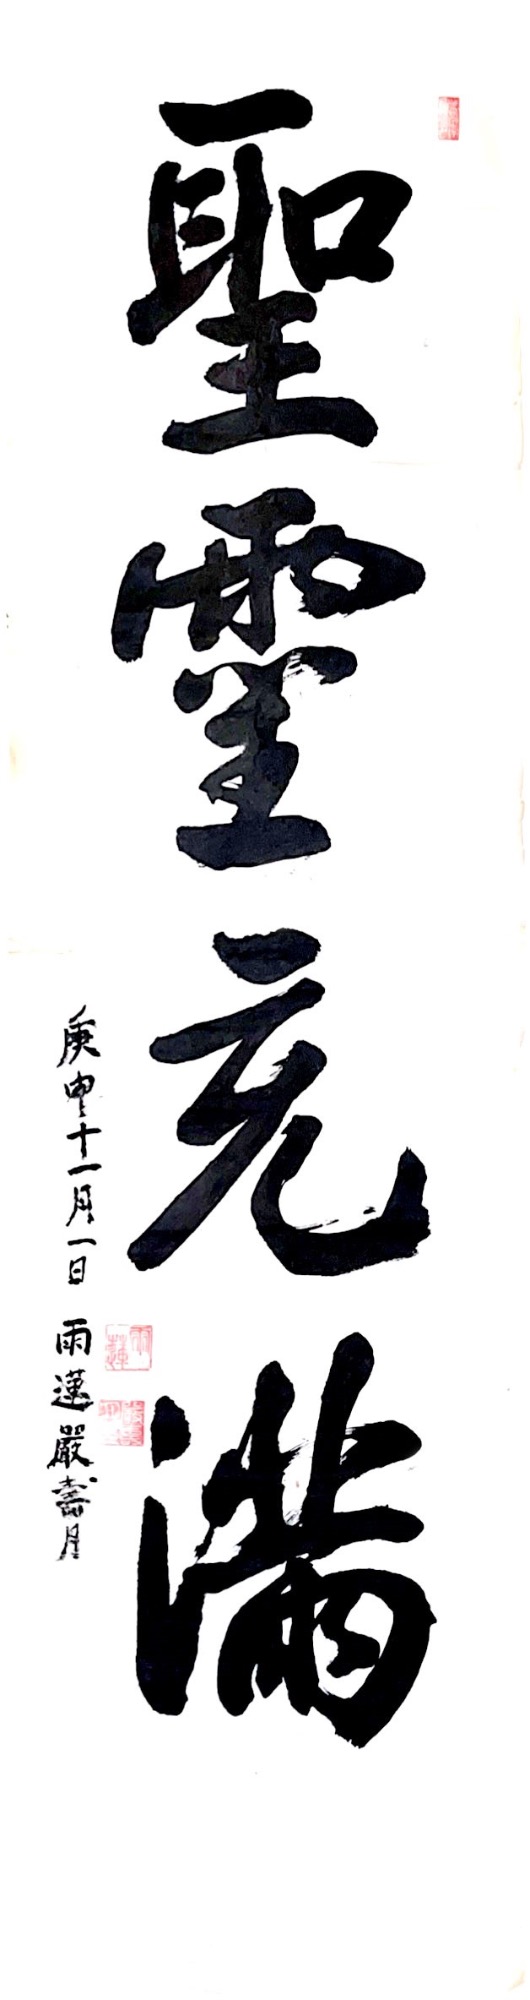 聖霊充満
庚申十一月一日 雨蓮嚴壽月